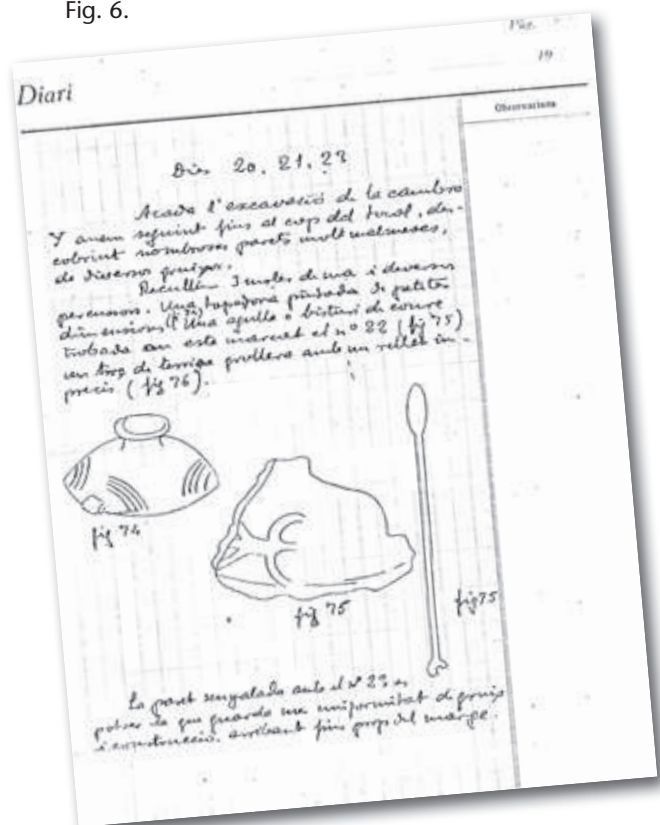 Fig. 6.
Pàg.
19
Diari
Observacions
Dia 20, 21, 23
Acaba l'excavació de la cambra
Y anem seguint fins al cap del tural, des-
cobrint nombroses parets molt malmeses,
de diversos gruixos.
Recullim 3 moles de ma i diversos
percusors. Una tapadora pintada de petites
dimensions (74). Una agulla o bisturi de coure
trobada on esta marcat el nº 22 (fig 75)
un troç de terrisa grollera amb un relleu im-
precis (fig 76).
fig 74
fig 75
fig 75
La paret senyalada amb el nº 23 es
potser la que guarda una uniformitat de gruix
i construcció, arribant fins prop del marge.